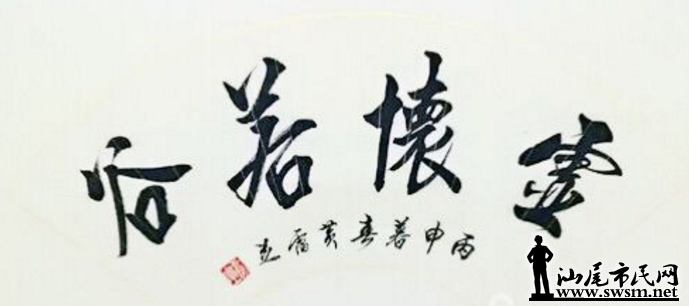 虚懷若谷
丙申暮春黄
汕尾市民网
www.swsm.net